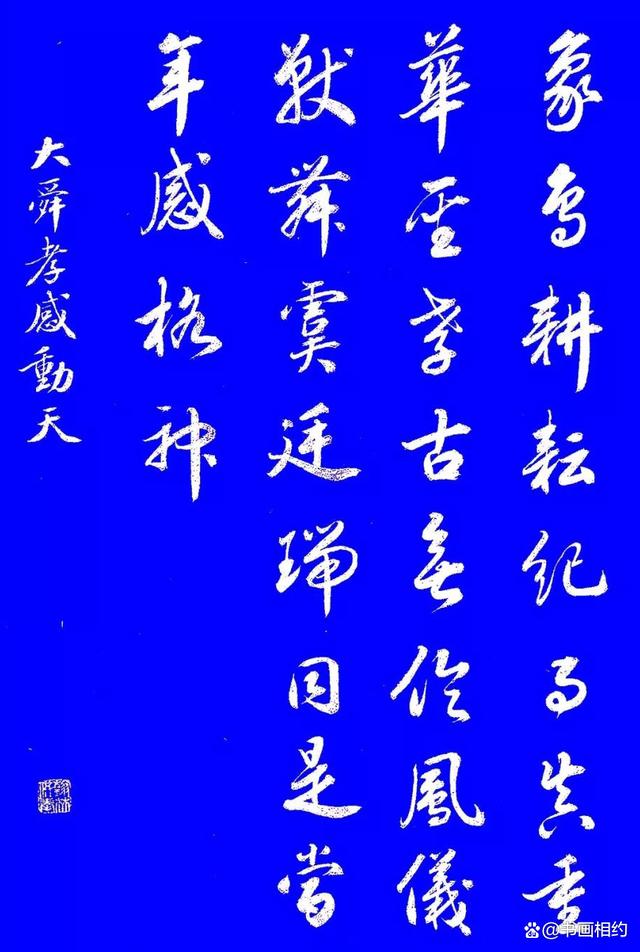 象鳥耕耘紀事真重
華至孝古無倫鳳儀
獸舞虞廷瑞同是當
年感格神
大舜孝感動天
@书画相约